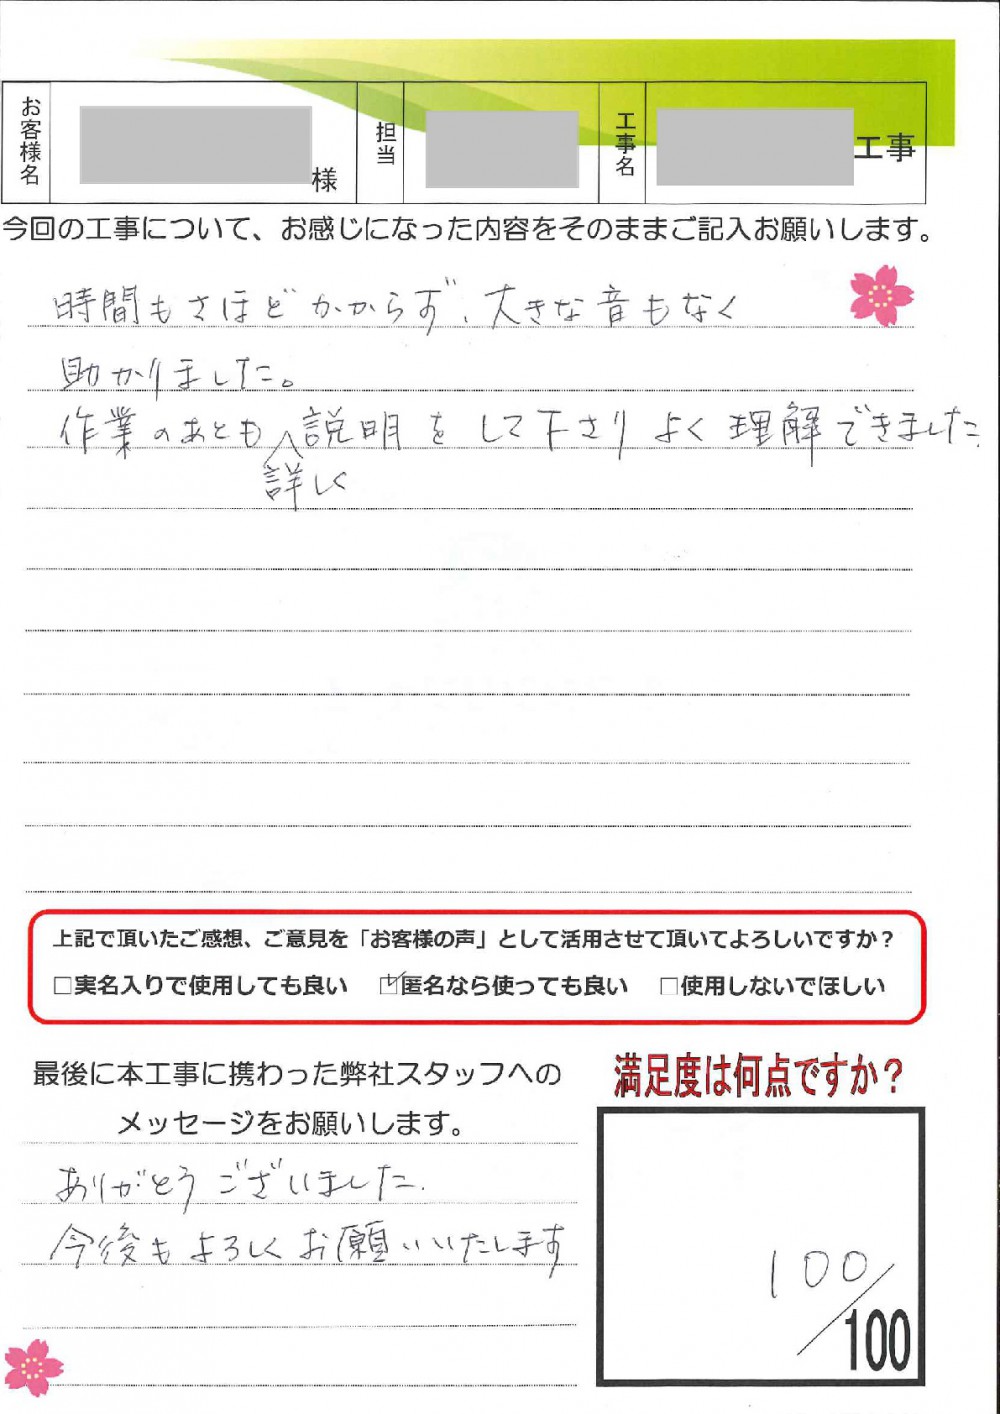 お客様名 様 担当 工事名 工事
今回の工事について、お感じになった内容をそのままご記入お願いします。
時間もさほどかからず、大きな音もなく
助かりました。
作業のあとも説明をして下さりよく理解できました.
詳しく
上記で頂いたご感想、ご意見を「お客様の声」として活用させて頂いてよろしいですか？
□実名入りで使用しても良い ☑匿名なら使っても良い □使用しないでほしい
最後に本工事に携わった弊社スタッフへの
メッセージをお願いします。
ありがとうございました.
今後もよろしくお願いいたします
満足度は何点ですか？
100/100